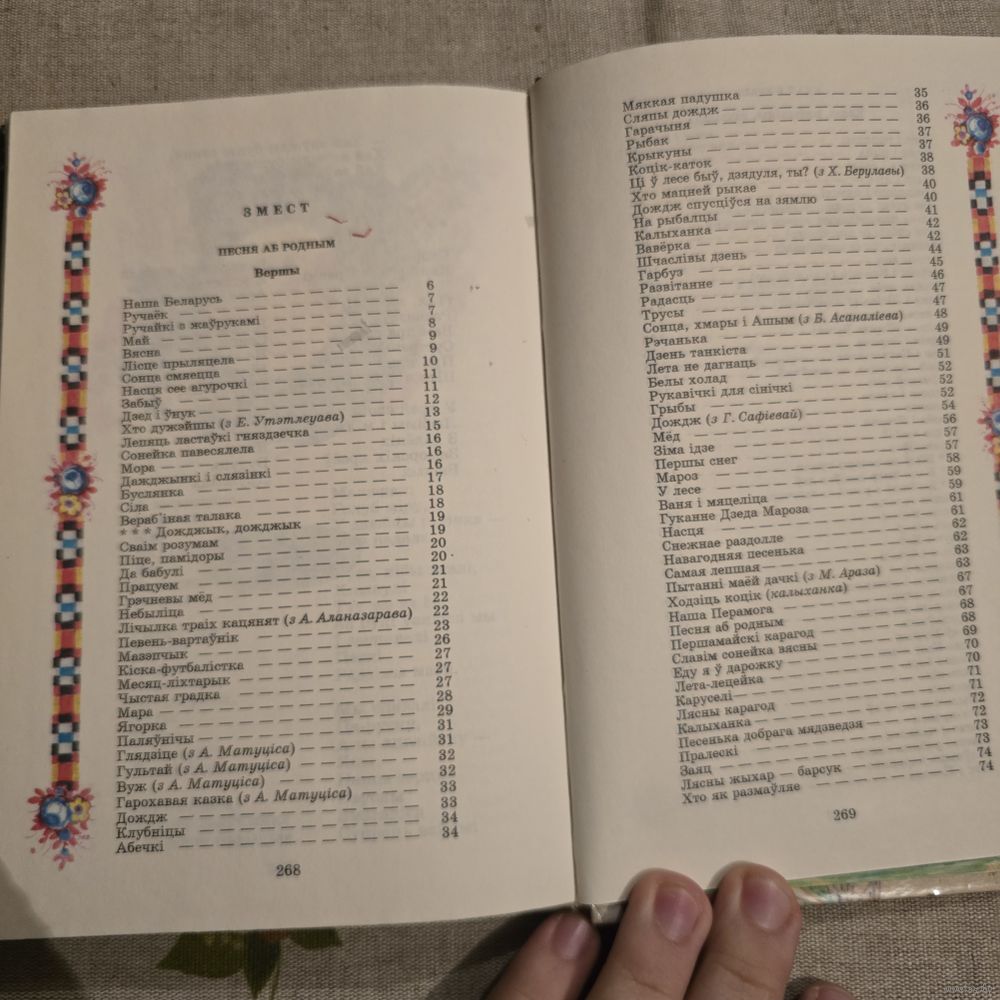 ЗМЕСТ
ПЕСНЯ АБ РОДНЫМ
Вершы
Наша Беларусь 6
Ручаёк 7
Ручайкі з жаўрукамі 7
Май 8
Вясна 9
Лісце прыляцела 9
Сонца смяецца 10
Насця сее агурочкі 11
Забыў 11
Дзед і ўнук 12
Хто дужэйшы (з Е. Утэтлеуава) 13
Лепяць ластаўкі гняздзечка 15
Сонейка павесялела 16
Мора 16
Дажджынкі і слязінкі 16
Буслянка 17
Сіла 18
Вераб'іная талака 18
* * * Дожджык, дожджык 19
Сваім розумам 19
Піце, памідоры 20
Да бабулі 20
Працуем 21
Грэчневы мёд 21
Небыліца 22
Лічылка траіх кацянят (з А. Аланазарава) 22
Певень-вартаўнік 23
Мазэпчык 26
Кіска-футбалістка 27
Месяц-ліхтарык 27
Чыстая градка 27
Мара 28
Ягорка 29
Паляўнічы 31
Глядзіце (з А. Матуціса) 31
Гультай (з А. Матуціса) 32
Вуж (з А. Матуціса) 32
Гарохавая казка (з А. Матуціса) 33
Дождж 33
Клубніцы 34
Абечкі 34
268
Мяккая падушка 35
Сляпы дождж 36
Гарачыня 36
Рыбак 37
Крыкуны 37
Коцік-каток 38
Ці ў лесе быў, дзядуля, ты? (з Х. Берулавы) 38
Хто мацней рыкае 40
Дождж спусціўся на зямлю 40
На рыбалцы 41
Калыханка 42
Вавёрка 42
Шчаслівы дзень 44
Гарбуз 45
Развітанне 46
Радасць 47
Трусы 47
Сонца, хмары і Ашым (з Б. Асаналіева) 48
Рэчанька 49
Дзень танкіста 49
Лета не дагнаць 51
Белы холад 52
Рукавічкі для сінічкі 52
Грыбы 52
Дождж (з Г. Сафіевай) 54
Мёд 56
Зіма ідзе 57
Першы снег 57
Мароз 58
У лесе 59
Ваня і мяцеліца 59
Гуканне Дзеда Мароза 61
Насця 61
Снежнае раздолле 62
Навагодняя песенька 62
Самая лепшая 63
Пытанні маёй дачкі (з М. Араза)
Ходзіць коцік (калыханка) 67
Наша Перамога 67
Песня аб родным 68
Першамайскі карагод 68
Славім сонейка вясны 69
Еду я ў дарожку 70
Лета-лецейка 70
Каруселі 71
Лясны карагод 71
Калыханка 72
Песенька добрага мядзведзя 72
Пралескі 73
Заяц 73
Лясны жыхар — барсук 74
Хто як размаўляе 74
269